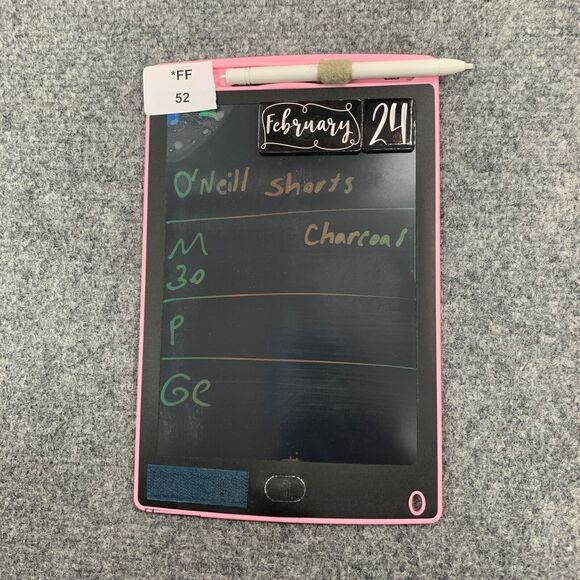 *FF
52
February 24
O'Neill Shorts
M Charcoal
30
P
GC